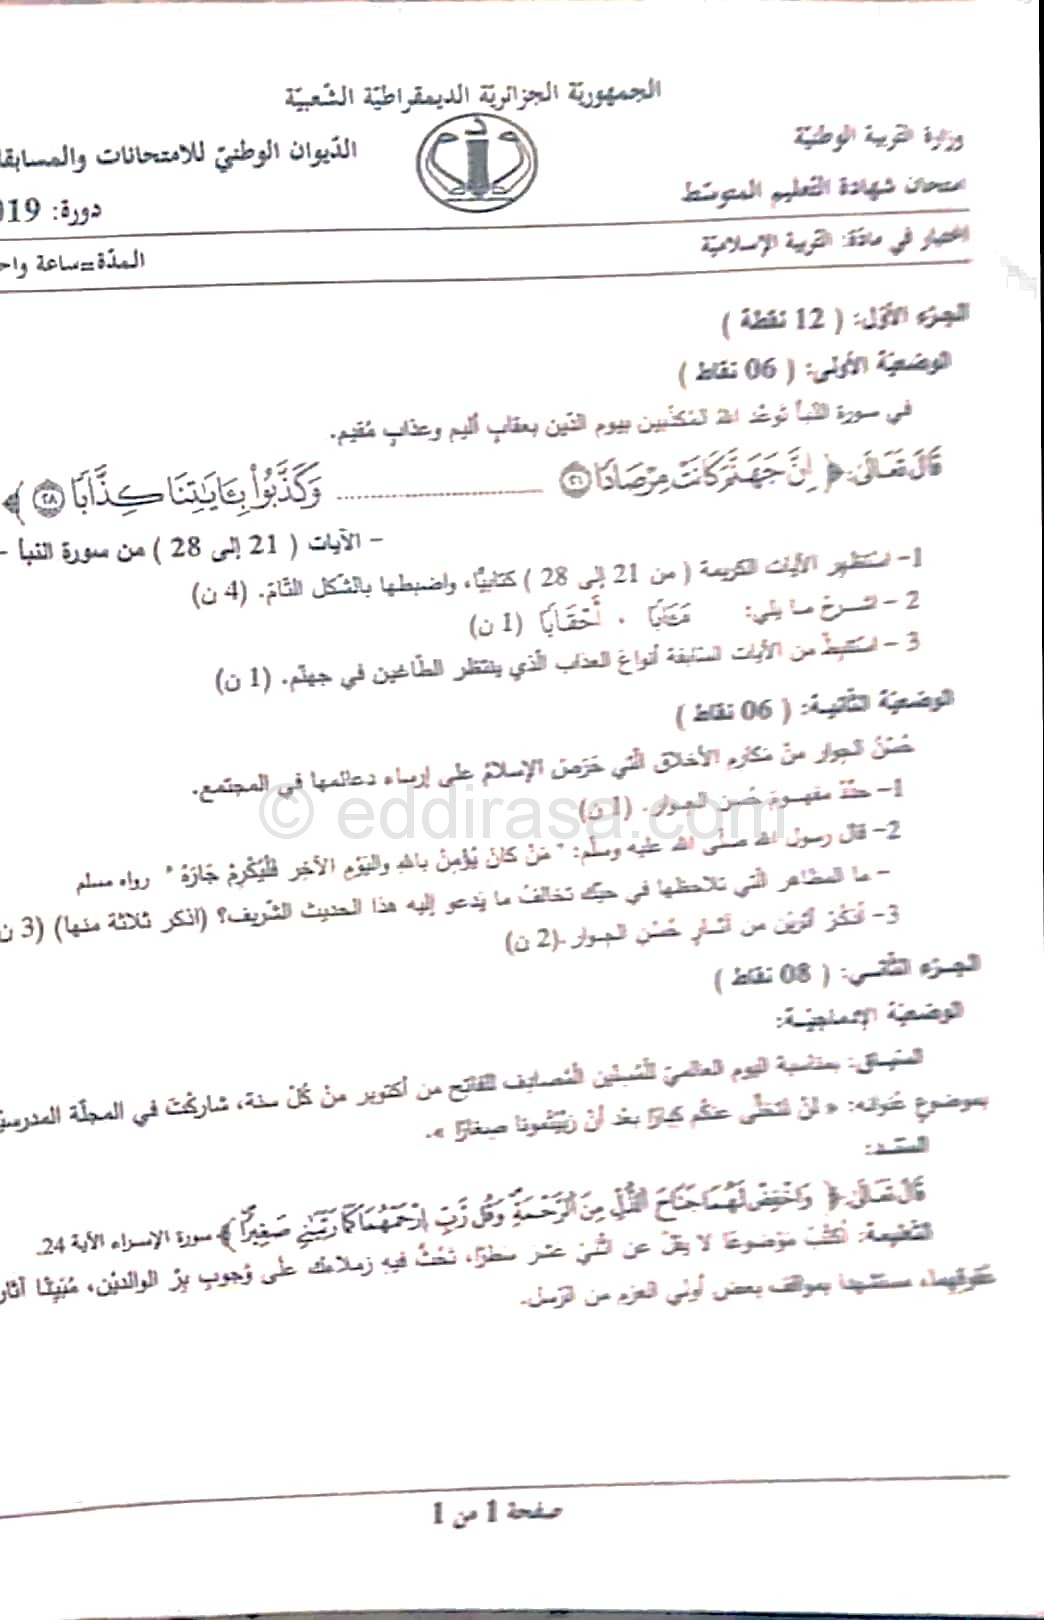 الجمهوريّة الجزائريّة الديمقراطيّة الشّعبيّة
وزارة التربية الوطنيّة
الدّيوان الوطنيّ للامتحانات والمسابقا
امتحان شهادة التّعليم المتوسّط
دورة: 019
اختبار في مادّة: التربية الإسلاميّة
المدّة=ساعة واح
الجزء الأوّل: ( 12 نقطة )
الوضعيّة الأولى: ( 06 نقاط )
في سورة النّبأ توعّد اللهُ المكذّبين بيوم الدّين بعقابٍ أليم وعذابٍ مُقيم.
قَالَ تَعَالَى: ﴿ إِنَّ جَهَنَّمَ كَانَتْ مِرْصَادًا ٢١ ........................ وَكَذَّبُواْ بِـَٔايَٰتِنَا كِذَّابًا ٢٨ ﴾
- الآيات ( 21 إلى 28 ) من سورة النبأ -
1- استظهر الآيات الكريمة ( من 21 إلى 28 ) كتابيًّا، واضبطها بالشّكل التّامّ. (4 ن)
2 - اشرحْ ما يلي: مَـَٔابًا . أَحْقَابًا (1 ن)
3 - استنبطْ من الآيات السّابقة أنواعَ العذاب الّذي ينتظر الطّاغين في جهنّم. (1 ن)
الوضعيّة الثّانية: ( 06 نقاط )
حُسْنُ الجوار منْ مكارم الأخلاق الّتي حَرَصَ الإسلامُ على إرساء دعائمها في المجتمع.
1- حدّدْ مفهومَ حُسن الجوار. (1 ن)
© eddirasa.com
2- قال رسول الله صلّى الله عليه وسلّم: " مَنْ كانَ يُؤْمِنُ باللهِ واليَوْمِ الآخِرِ فَلْيُكْرِمْ جَارَهُ " رواه مسلم
- ما المظاهر الّتي تلاحظها في حيّك تخالفُ ما يَدعو إليه هذا الحديث الشّريف؟ (اذكر ثلاثة منها) (3 ن
3- أُذكُرْ أثرَيْن من آثـارِ حُسْنِ الجـوار.(2 ن)
الجـزء الثّانـي: ( 08 نقاط )
الوضعيّة الإدماجيّـة:
السّيـاق: بمناسبة اليوم العالميّ للمُسنّين المُصادِف للفاتح من أكتوبر منْ كُلّ سنة، شاركْتَ في المجلّة المدرسيّ
بموضوعٍ عُنوانه: « لنْ نتخلّى عنكُم كبارًا بعْدَ أنْ ربّيْتُمونا صِغارًا ».
السّنـد:
قَالَ تَعَالَى: ﴿ وَاخْفِضْ لَهُمَا جَنَاحَ الذُّلِّ مِنَ الرَّحْمَةِ وَقُل رَّبِّ اِرْحَمْهُمَا كَمَا رَبَّيَٰنِي صَغِيرًا ﴾ سورة الإسراء الآية 24.
التّعليمة: أُكتُبْ مَوْضوعًا لا يقلّ عن اثْنَيْ عَشَرَ سطرًا، تَحُثُّ فيه زملاءك على وُجوبِ برّ الوالديْن، مُبَيّنًا آثارَ
عُقوقِهِما، مستشهدا بمواقف بعض أولي العزم من الرّسل.
صفحة 1 من 1